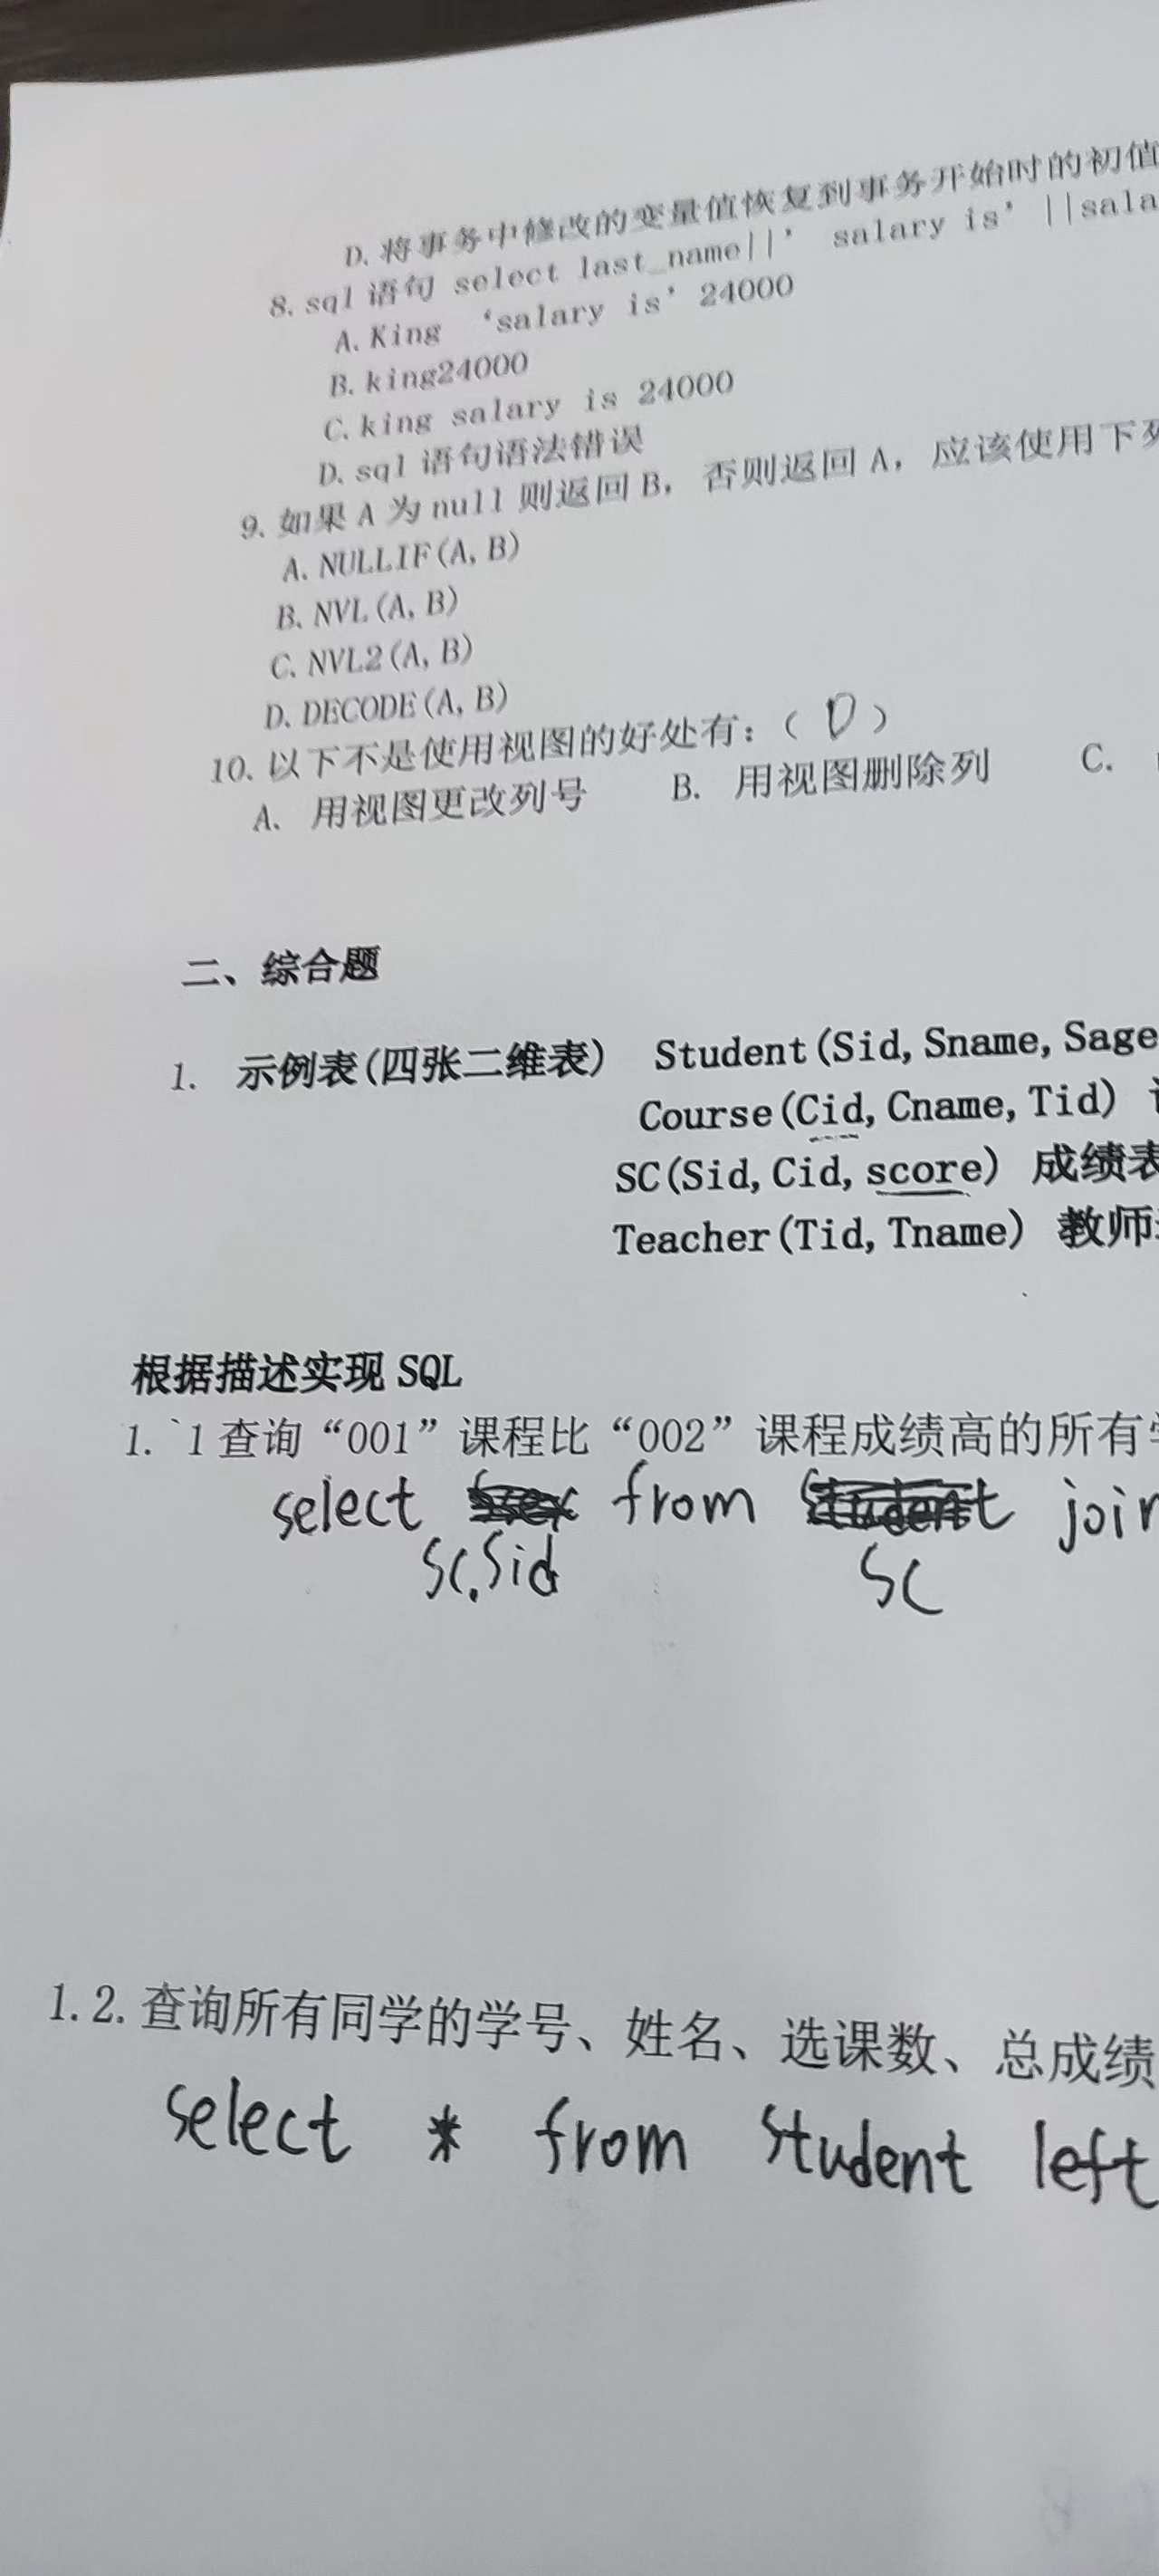 D. 将事务中修改的变量值恢复到事务开始时的初值
8. sql 语句 select last_name||’ salary is’ ||sala
A. King ‘salary is’ 24000
B. king24000
C. king salary is 24000
D. sql 语句语法错误
9. 如果 A 为 null 则返回 B，否则返回 A，应该使用下列
A. NULLIF(A, B)
B. NVL(A, B)
C. NVL2(A, B)
D. DECODE(A, B)
10. 以下不是使用视图的好处有：（ D ）
A. 用视图更改列号 B. 用视图删除列 C.
二、综合题
1. 示例表(四张二维表) Student(Sid, Sname, Sage
Course(Cid, Cname, Tid)
SC(Sid, Cid, score) 成绩表
Teacher(Tid, Tname) 教师
根据描述实现 SQL
1. `1 查询“001”课程比“002”课程成绩高的所有
select from join
SC.Sid SC
1.2. 查询所有同学的学号、姓名、选课数、总成绩
select * from student left